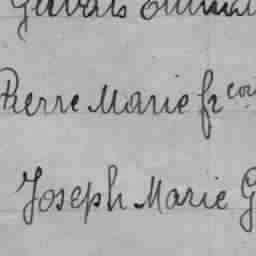 Gervais
Pierre Marie
Joseph Marie G